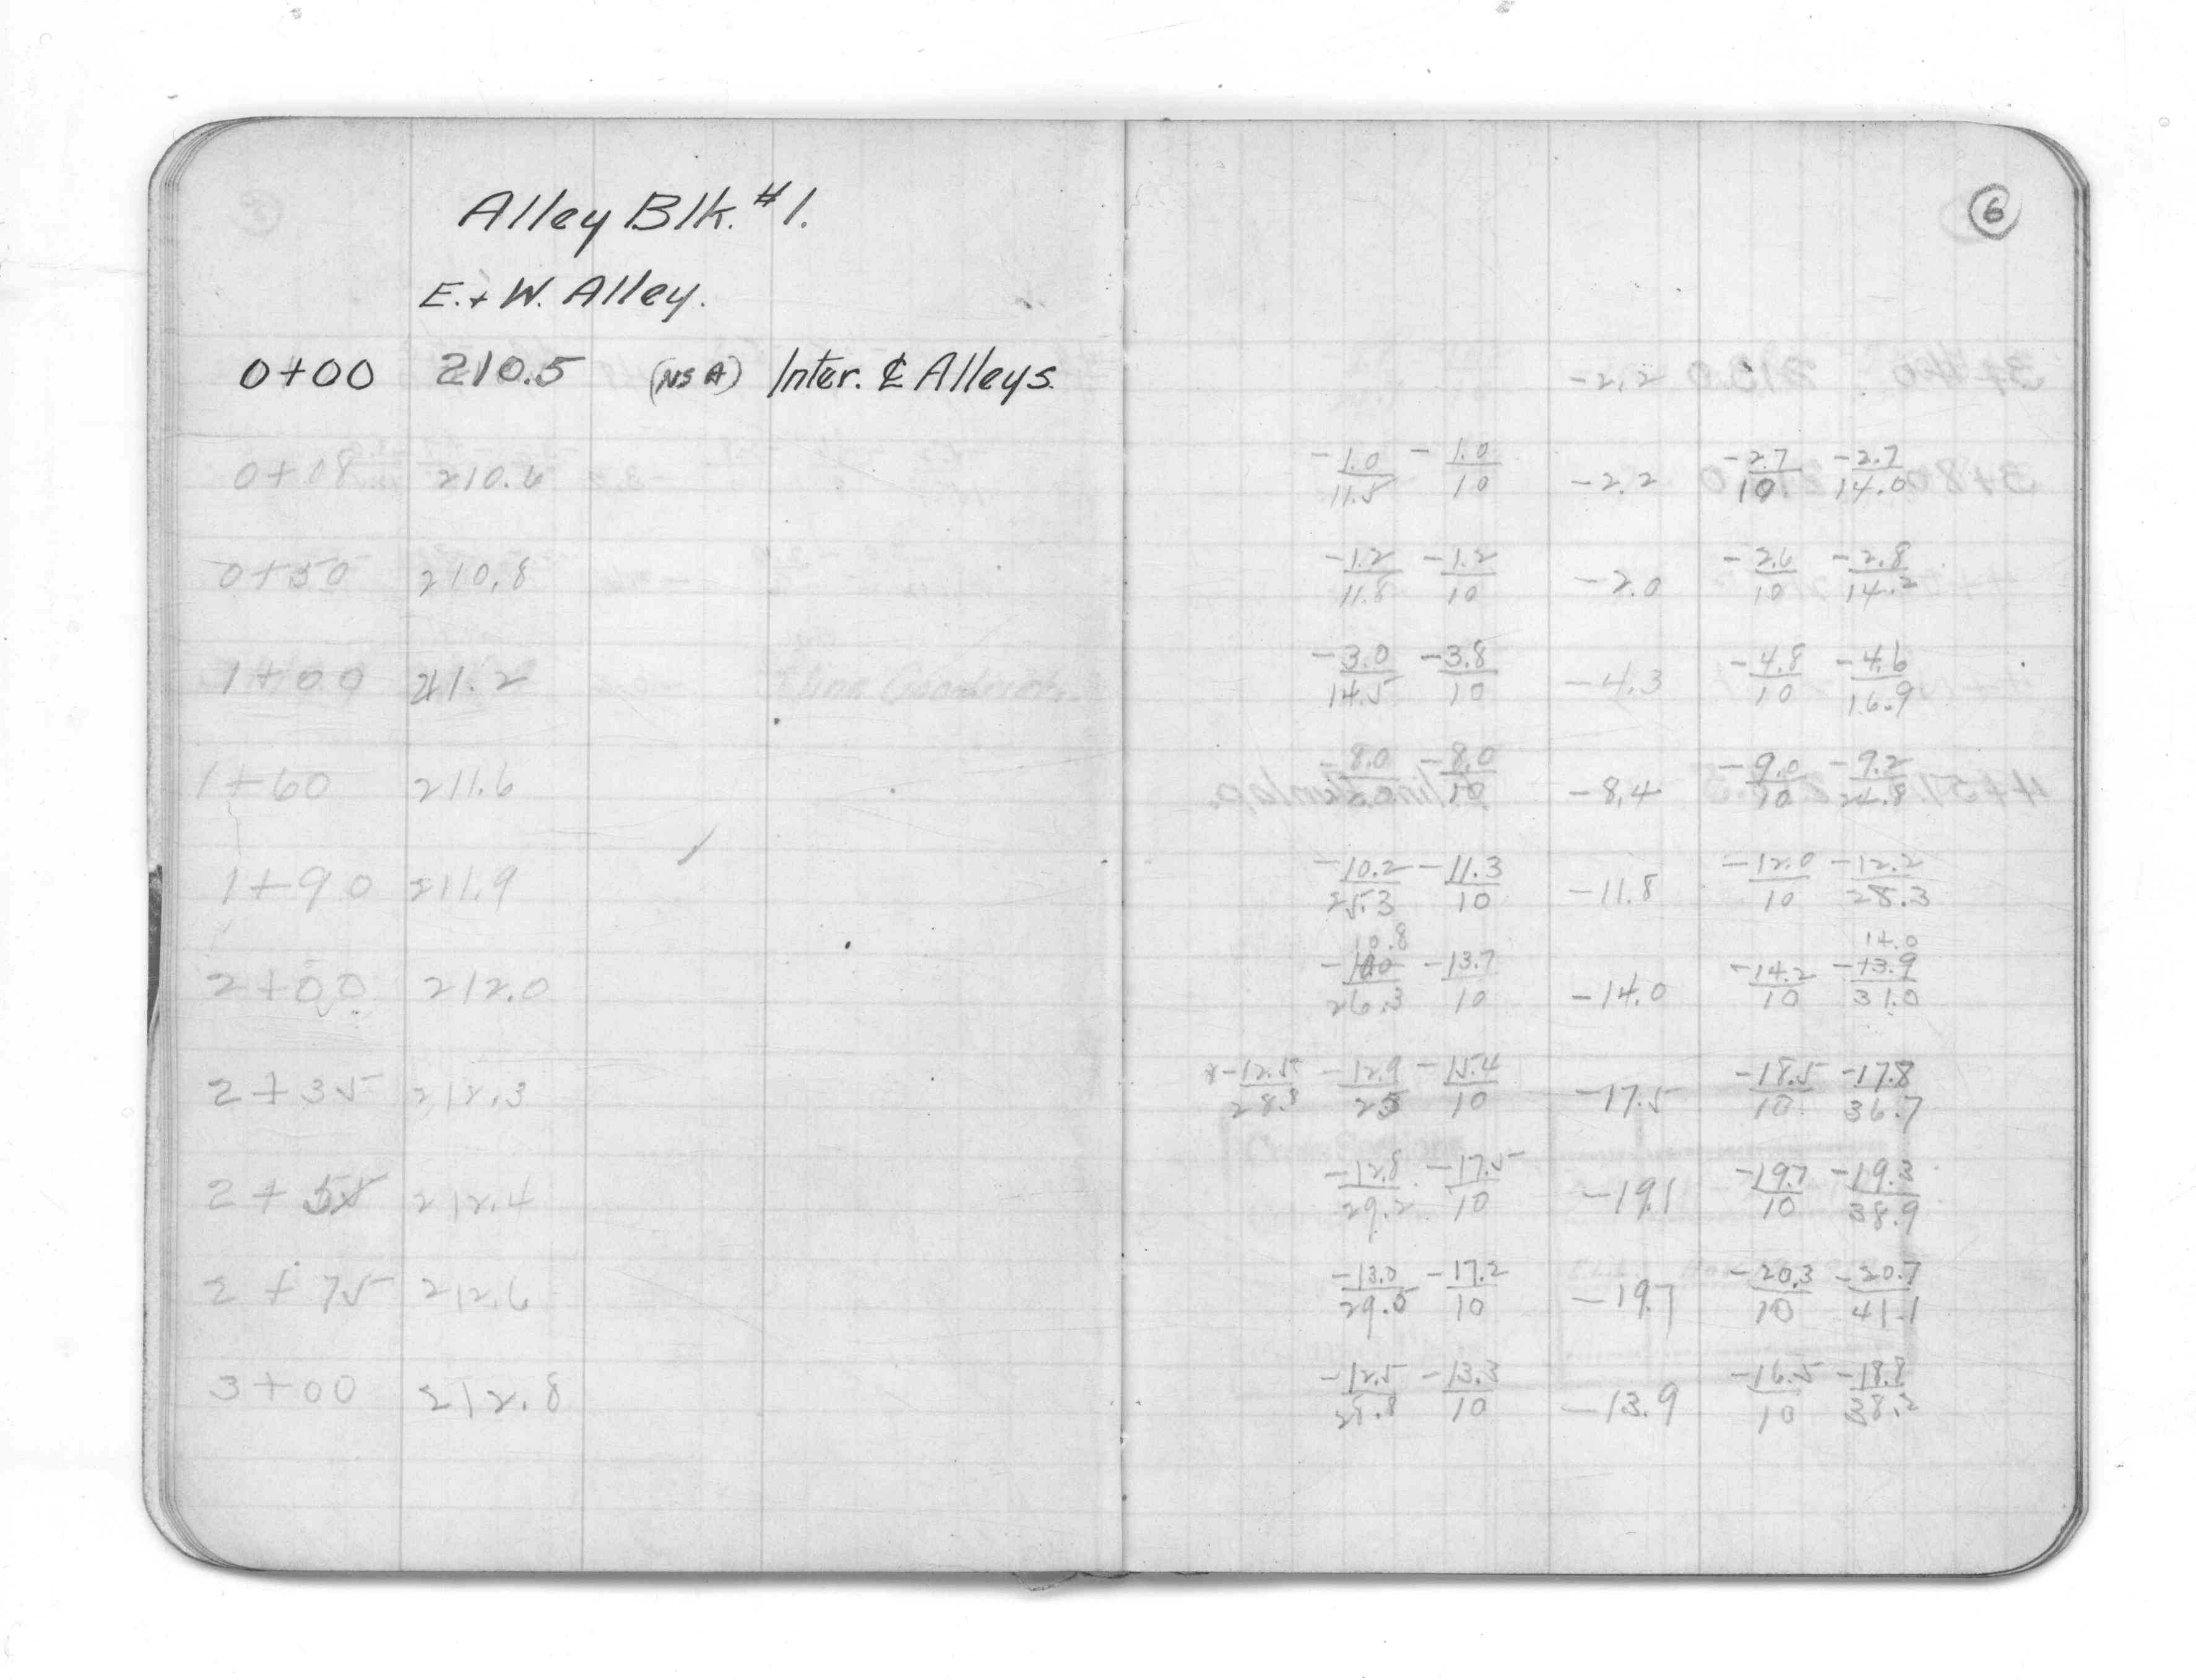 6
Alley Blk. #1.
E. + W. Alley.
0+00 210.5 (NS A) Inter. ℄ Alleys. -2.2
0+08 210.6 -1.0/11.5 -1.0/10 -2.2 -2.7/10 -2.7/14.0
0+50 210.8 -1.2/11.8 -1.2/10 -2.0 -2.6/10 -2.8/14.2
1+00 211.2 -3.0/14.5 -3.8/10 -4.3 -4.8/10 -4.6/16.9
1+60 211.6 -8.0 -8.0/10 -8.4 -9.0/10 -9.2/24.8
1+90 211.9 -10.2/25.3 -11.3/10 -11.8 -12.0/10 -12.2/28.3
10.8 14.0
2+00 212.0 26.3 -13.7/10 -14.0 -14.2/10 -13.9/31.0
2+35 212.3 -12.5/28.8 -12.9/25 -15.4/10 -17.5 -18.5/10 -17.8/36.7
2+55 212.4 -12.8/29.2 -17.5/10 -19.1 -19.7/10 38.9
2+75 212.6 -13.0/29.5 -17.2/10 -19.7 -20.3/10 -20.7/41.1
3+00 212.8 -12.5/28.8 -13.3/10 -13.9 -16.5/10 -18.8/38.2